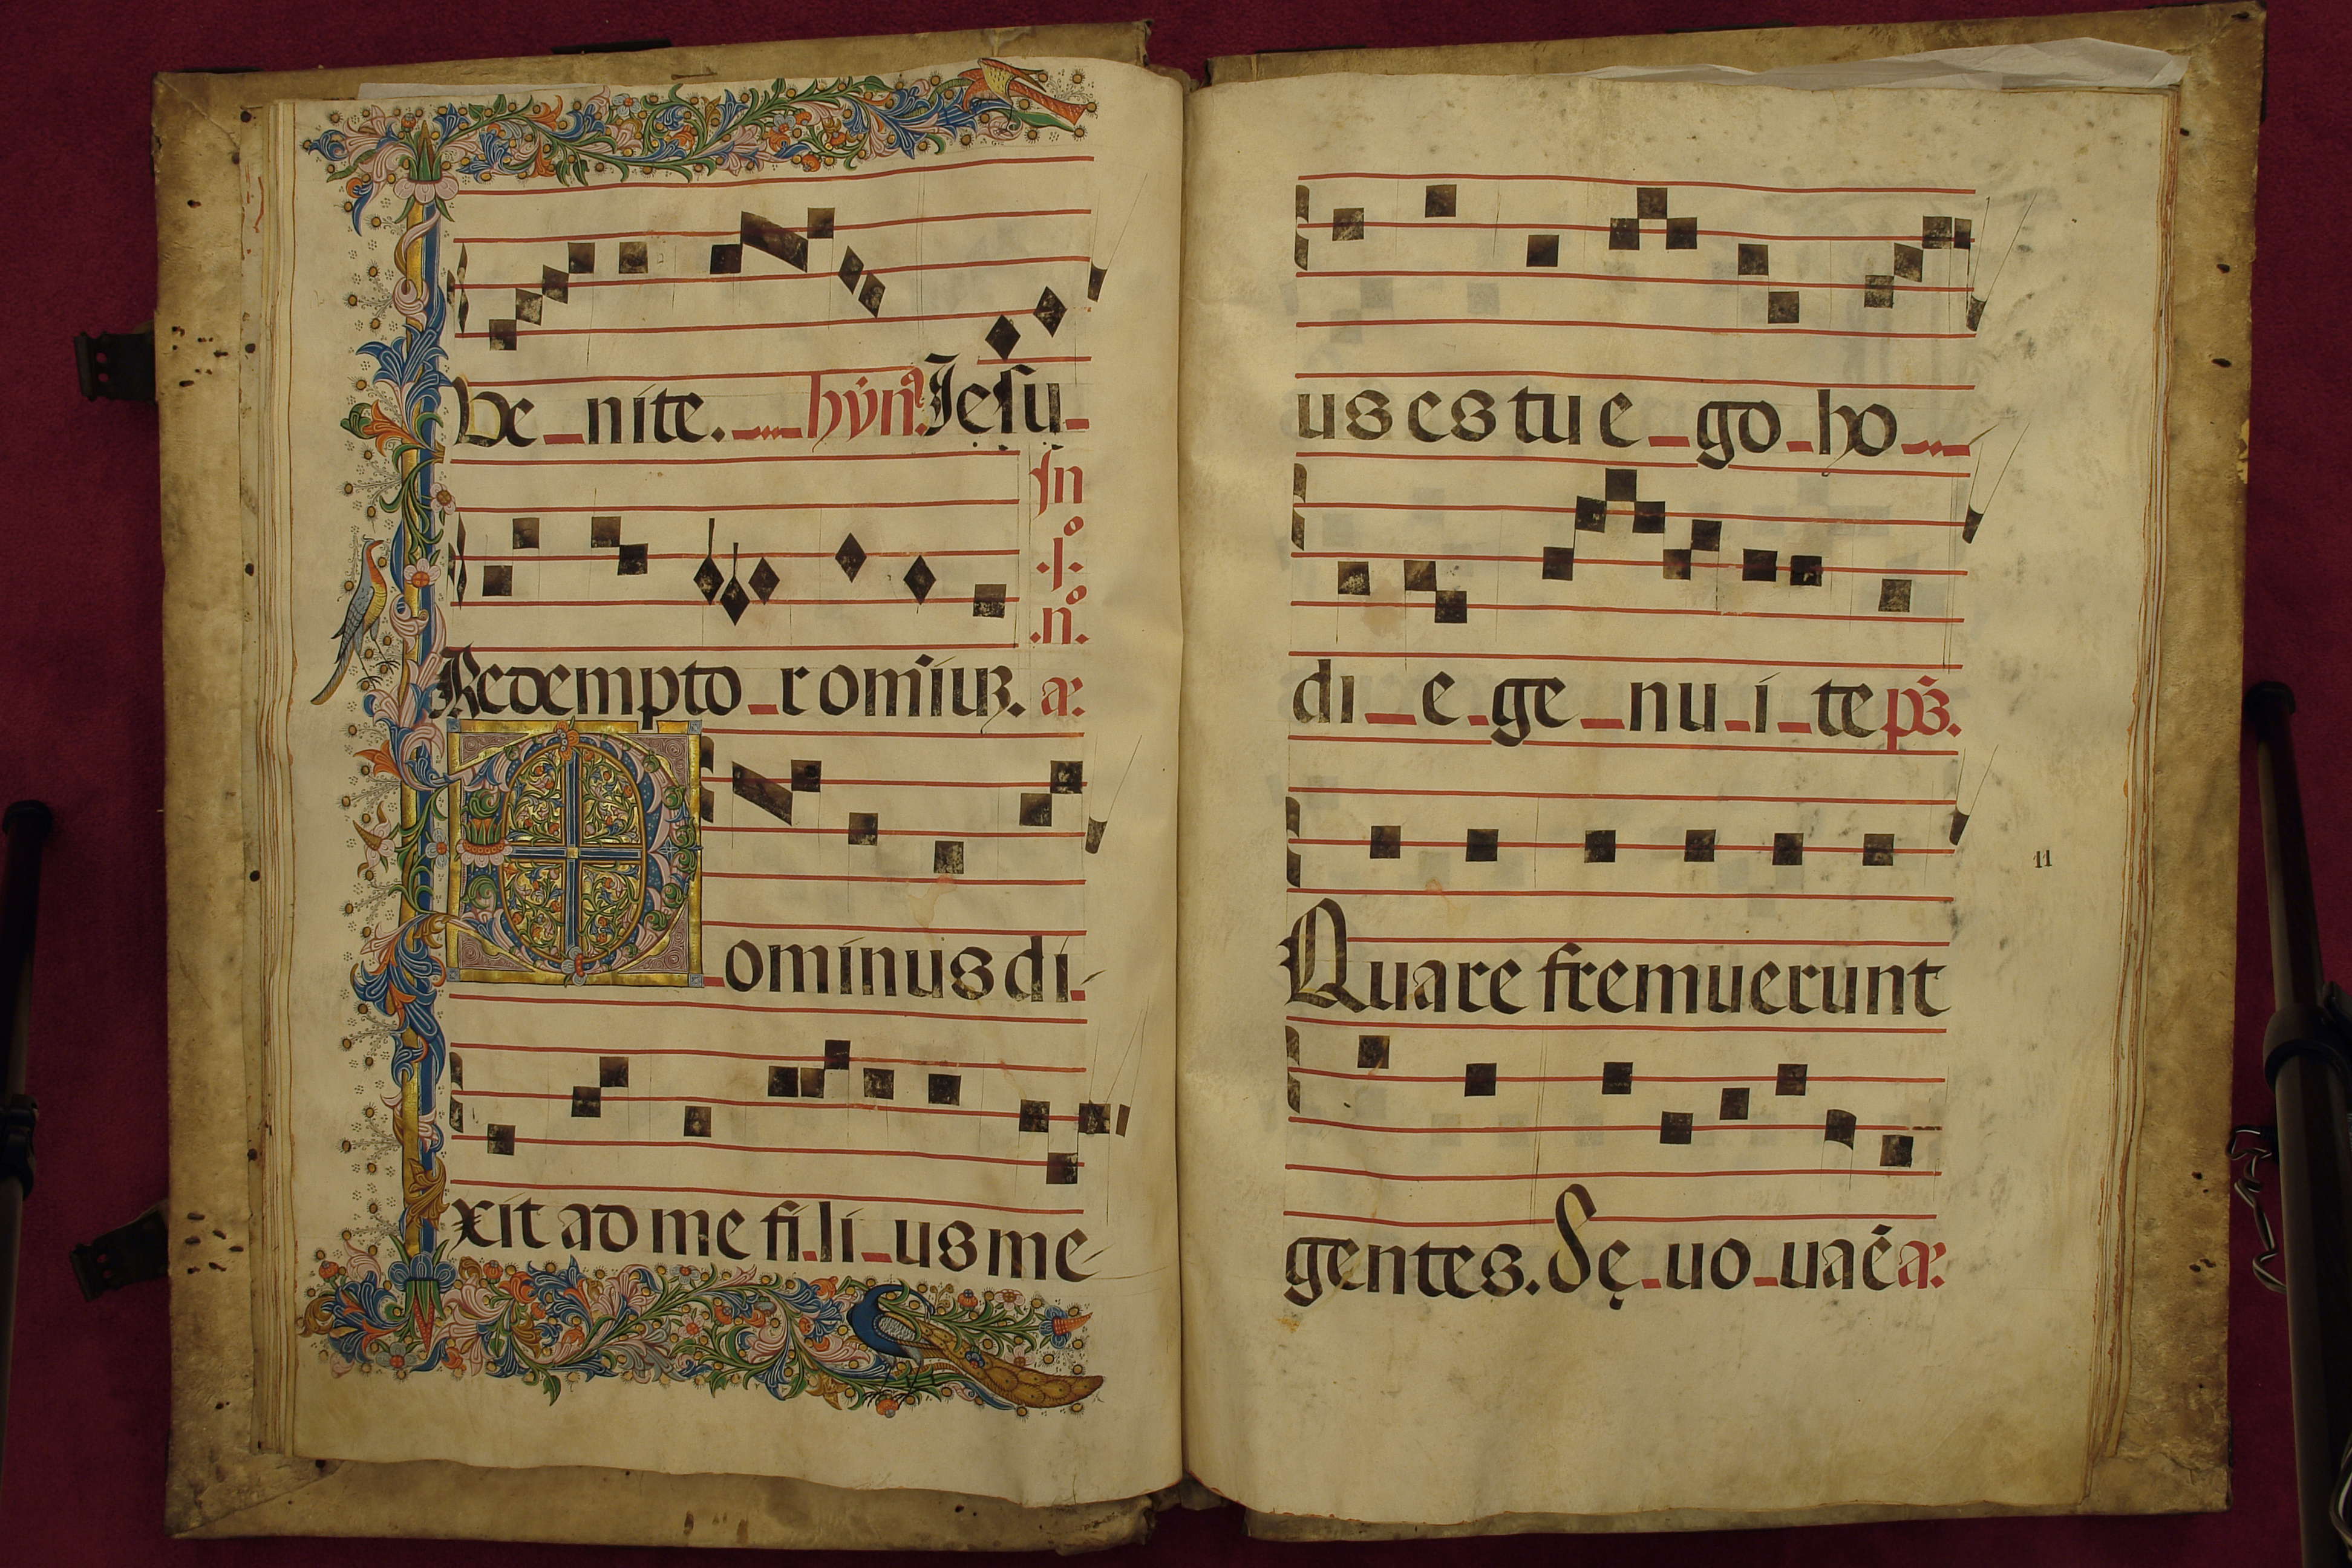 Ve_nite. hȳn̄ᵃ Jesu_
In
.j.º
.nº.
Redempto_r omniuꝫ. a:
Dominus di_
xit ad me fi_li_us me
us es tu e_go ho_
di_e_ge_nu_i_te ps̄.
11
Quare fremuerunt
gentes. Sę_uo_uaé a: